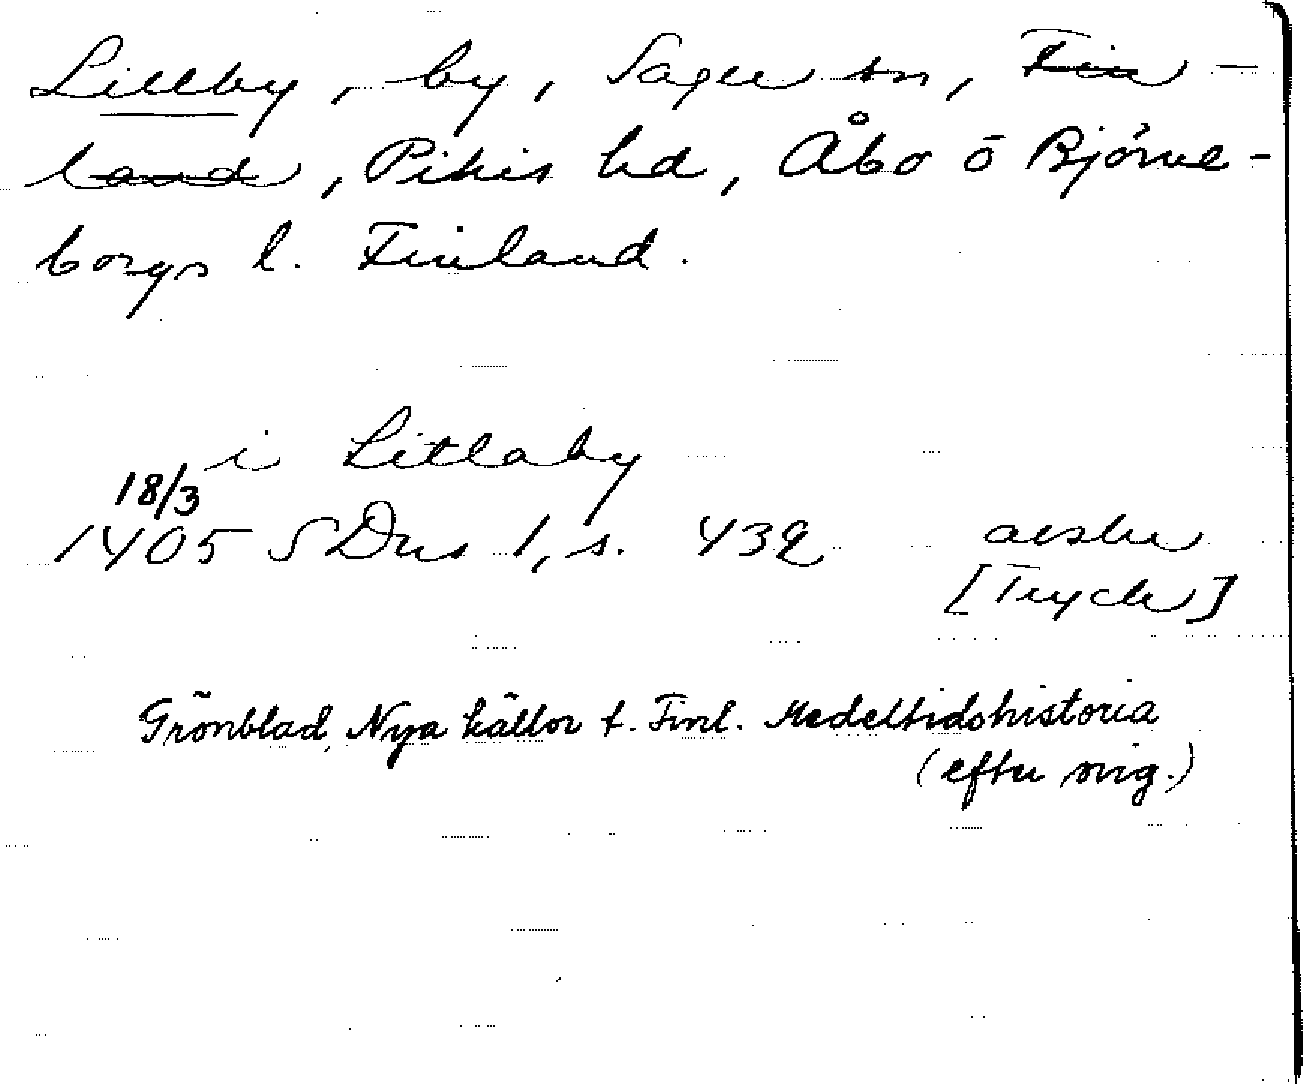 Lillby, by, Sagu sn, Fin-
land, Pikis hd, Åbo o Björne-
borgs l. Finland.
i Litlaby
18/3
1405 SDns 1, s. 432 avskr
[Tryck]
Grönblad, Nya källor t. Finl. Medeltidshistoria
(efter orig.)